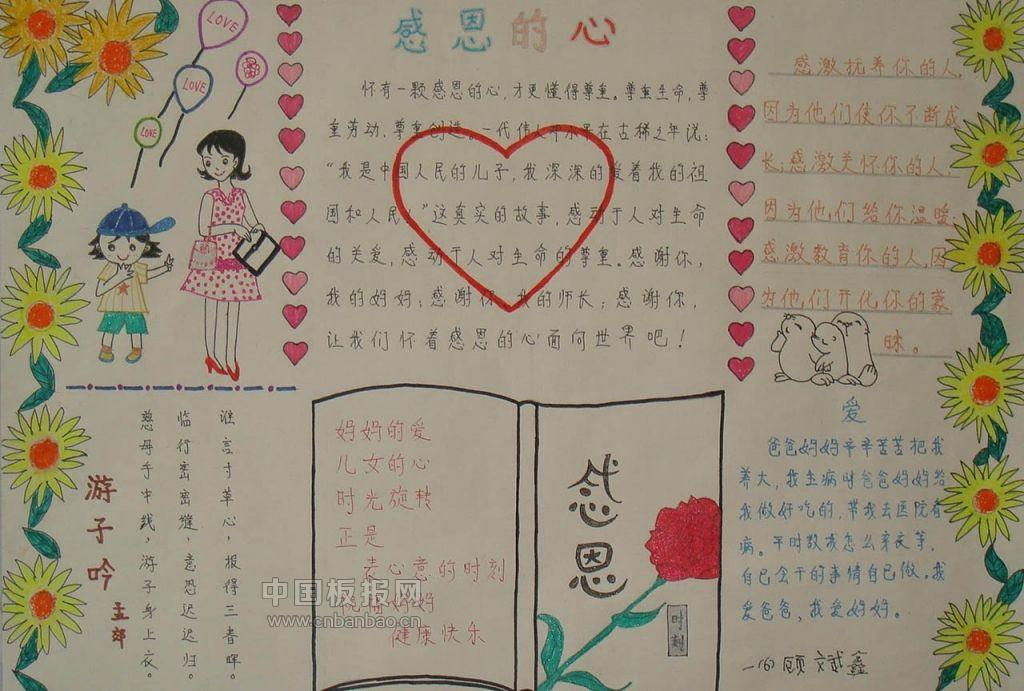 感恩的心
LOVE
LOVE
LOVE
怀有一颗感恩的心，才更懂得尊重。尊重生命，尊
重劳动、尊重创造。一代伟人邓小平在古稀之年说：
“我是中国人民的儿子，我深深的爱着我的祖
国和人民。”这真实的故事，感动于人对生命
的关爱，感动于人对生命的尊重。感谢你，
我的妈妈；感谢你，我的师长；感谢你，
让我们怀着感恩的心面向世界吧！
感激抚养你的人，
因为他们使你不断成
长；感激关怀你的人，
因为他们给你温暖；
感激教育你的人，因
为他们开化你的蒙
昧。
游子吟
孟郊
慈母手中线，游子身上衣。
临行密密缝，意恐迟迟归。
谁言寸草心，报得三春晖。
妈妈的爱
儿女的心
时光旋转
正是
表心意的时刻
祝福妈妈
健康快乐
感恩
时刻
爱
爸爸妈妈辛辛苦苦把我
养大，我生病时爸爸妈妈给
我做好吃的，带我去医院看
病。平时教我怎么亲衣等，
自己会干的事情自己做。我
爱爸爸，我爱妈妈。
一(6)顾斌鑫
中国板报网
www.cnbanbao.cn